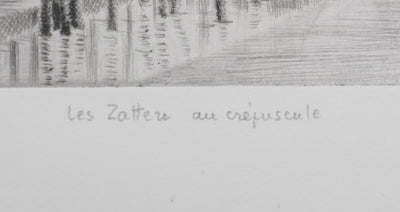 Les Zattere au crépuscule